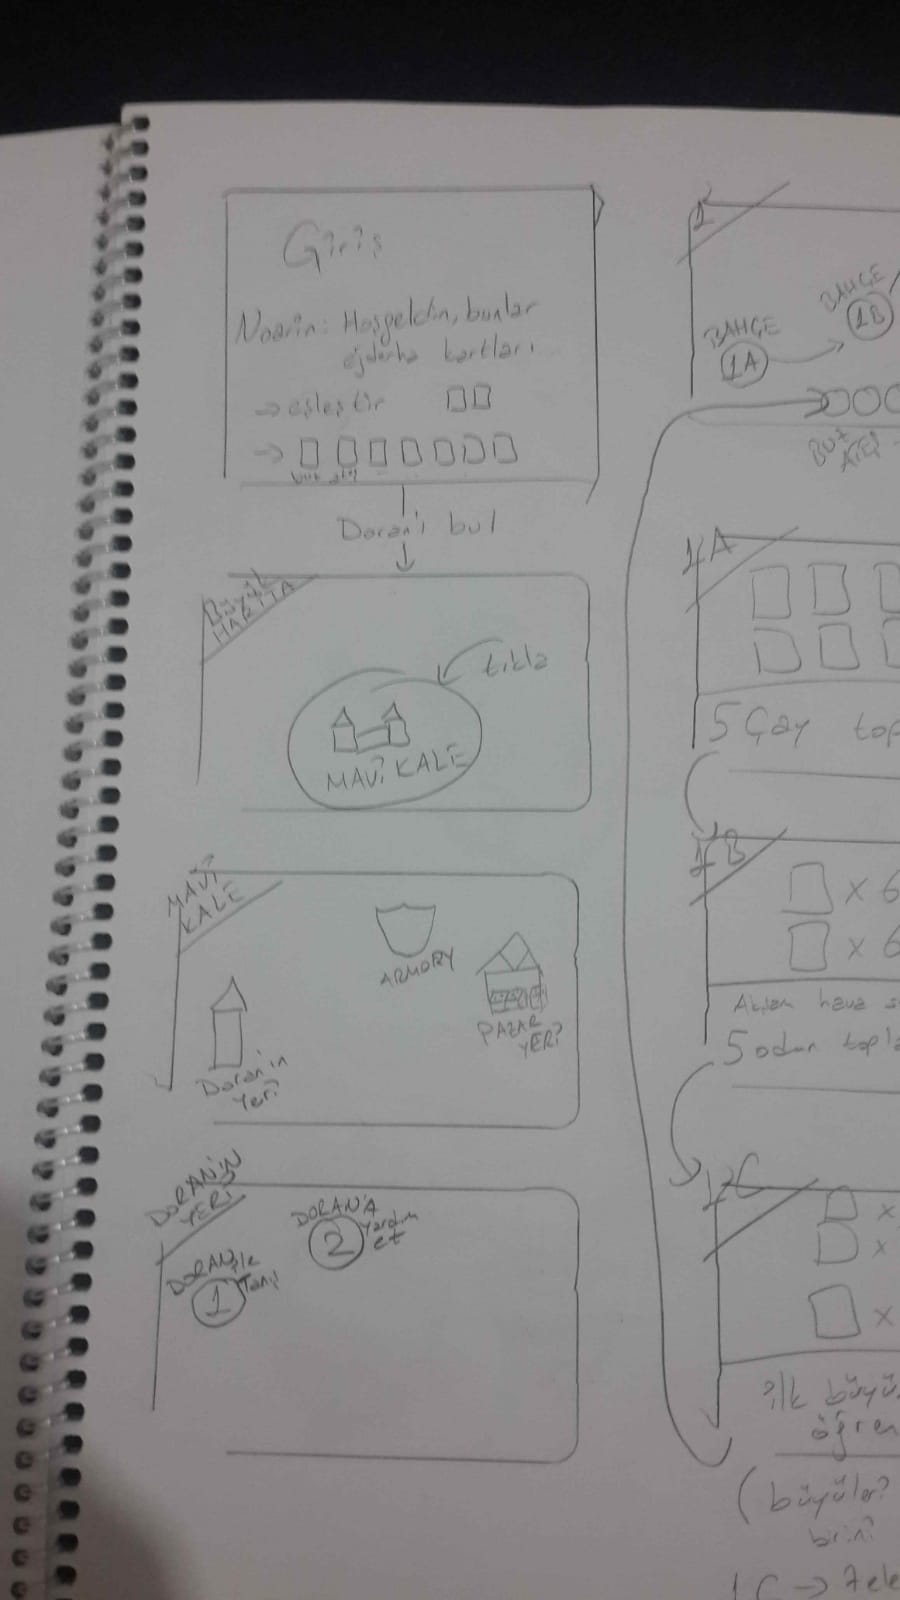 Giriş
Noarin: Hoşgeldin, bunlar
ejderha kartları...
→ eşleştir
→
Doran'ı bul
BÜYÜK
HARİTA
tıkla
MAVİ KALE
MAVİ
KALE
ARMORY
PAZAR
YERİ
Doran'ın
Yeri
DORAN'IN
YERİ
DORAN'A
Yardım
et
2
DORAN ile
Tanış
1
1
BAHÇE
1A
BAHÇE
1B
BUZ
ATEŞ
1A
5 Çay top
1B
x 6
x 6
Akşam hava s
5 odun topla
1C
x
x
x
ilk büyü
öğren
(büyüler?
birini
1C →